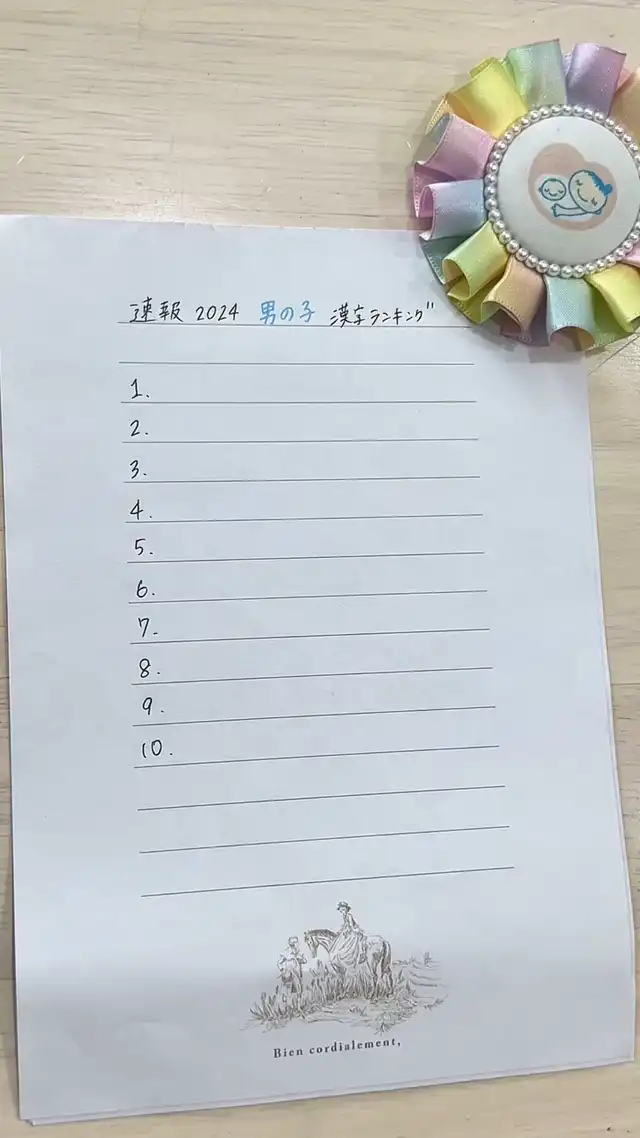 速報 2024 男の子 漢字ランキング
1.
2.
3.
4.
5.
6.
7.
8.
9.
10.
Bien cordialement,